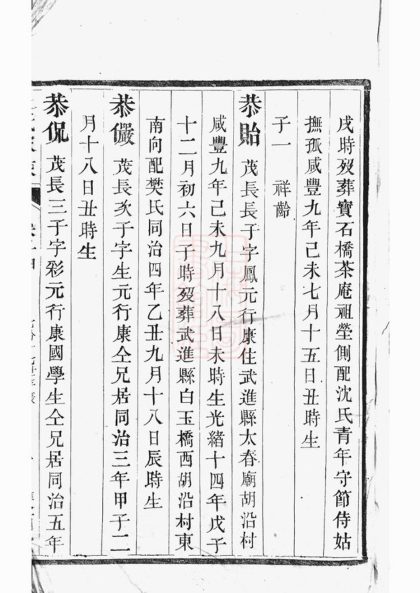 戌時歿葬寶石橋茶庵祖塋側配沈氏青年守節侍姑
撫孤咸豐九年己未七月十五日丑時生
子一 祥齡
恭貽 茂長長子字鳳元行康住武進縣太春廟胡沿村
咸豐九年己未九月十八日未時生光緒十四年戊子
十二月初六日子時歿葬武進縣白玉橋西胡沿村東
南向配樊氏同治四年乙丑九月十八日辰時生
恭儼 茂長次子字生元行康仝兄居同治三年甲子二
月十八日丑時生
恭侃 茂長三子字彩元行康國學生仝兄居同治五年